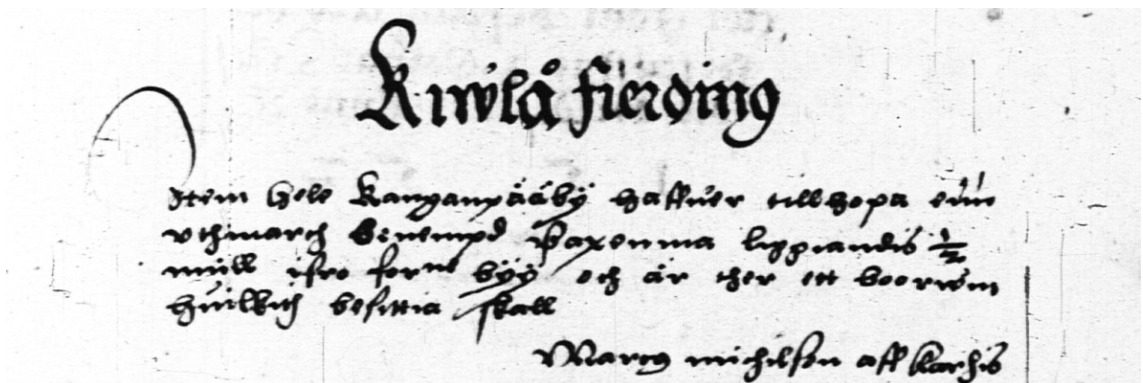 Kiwlå fierding
Item hele Kanganpääby haffuer tillhopa einn
vthmarch benempd Paxenma liggiandis ½
miill ifro for:ne byy och är ther ett boorum
huilkith besittia skall
Marcus michilson aff Karhis